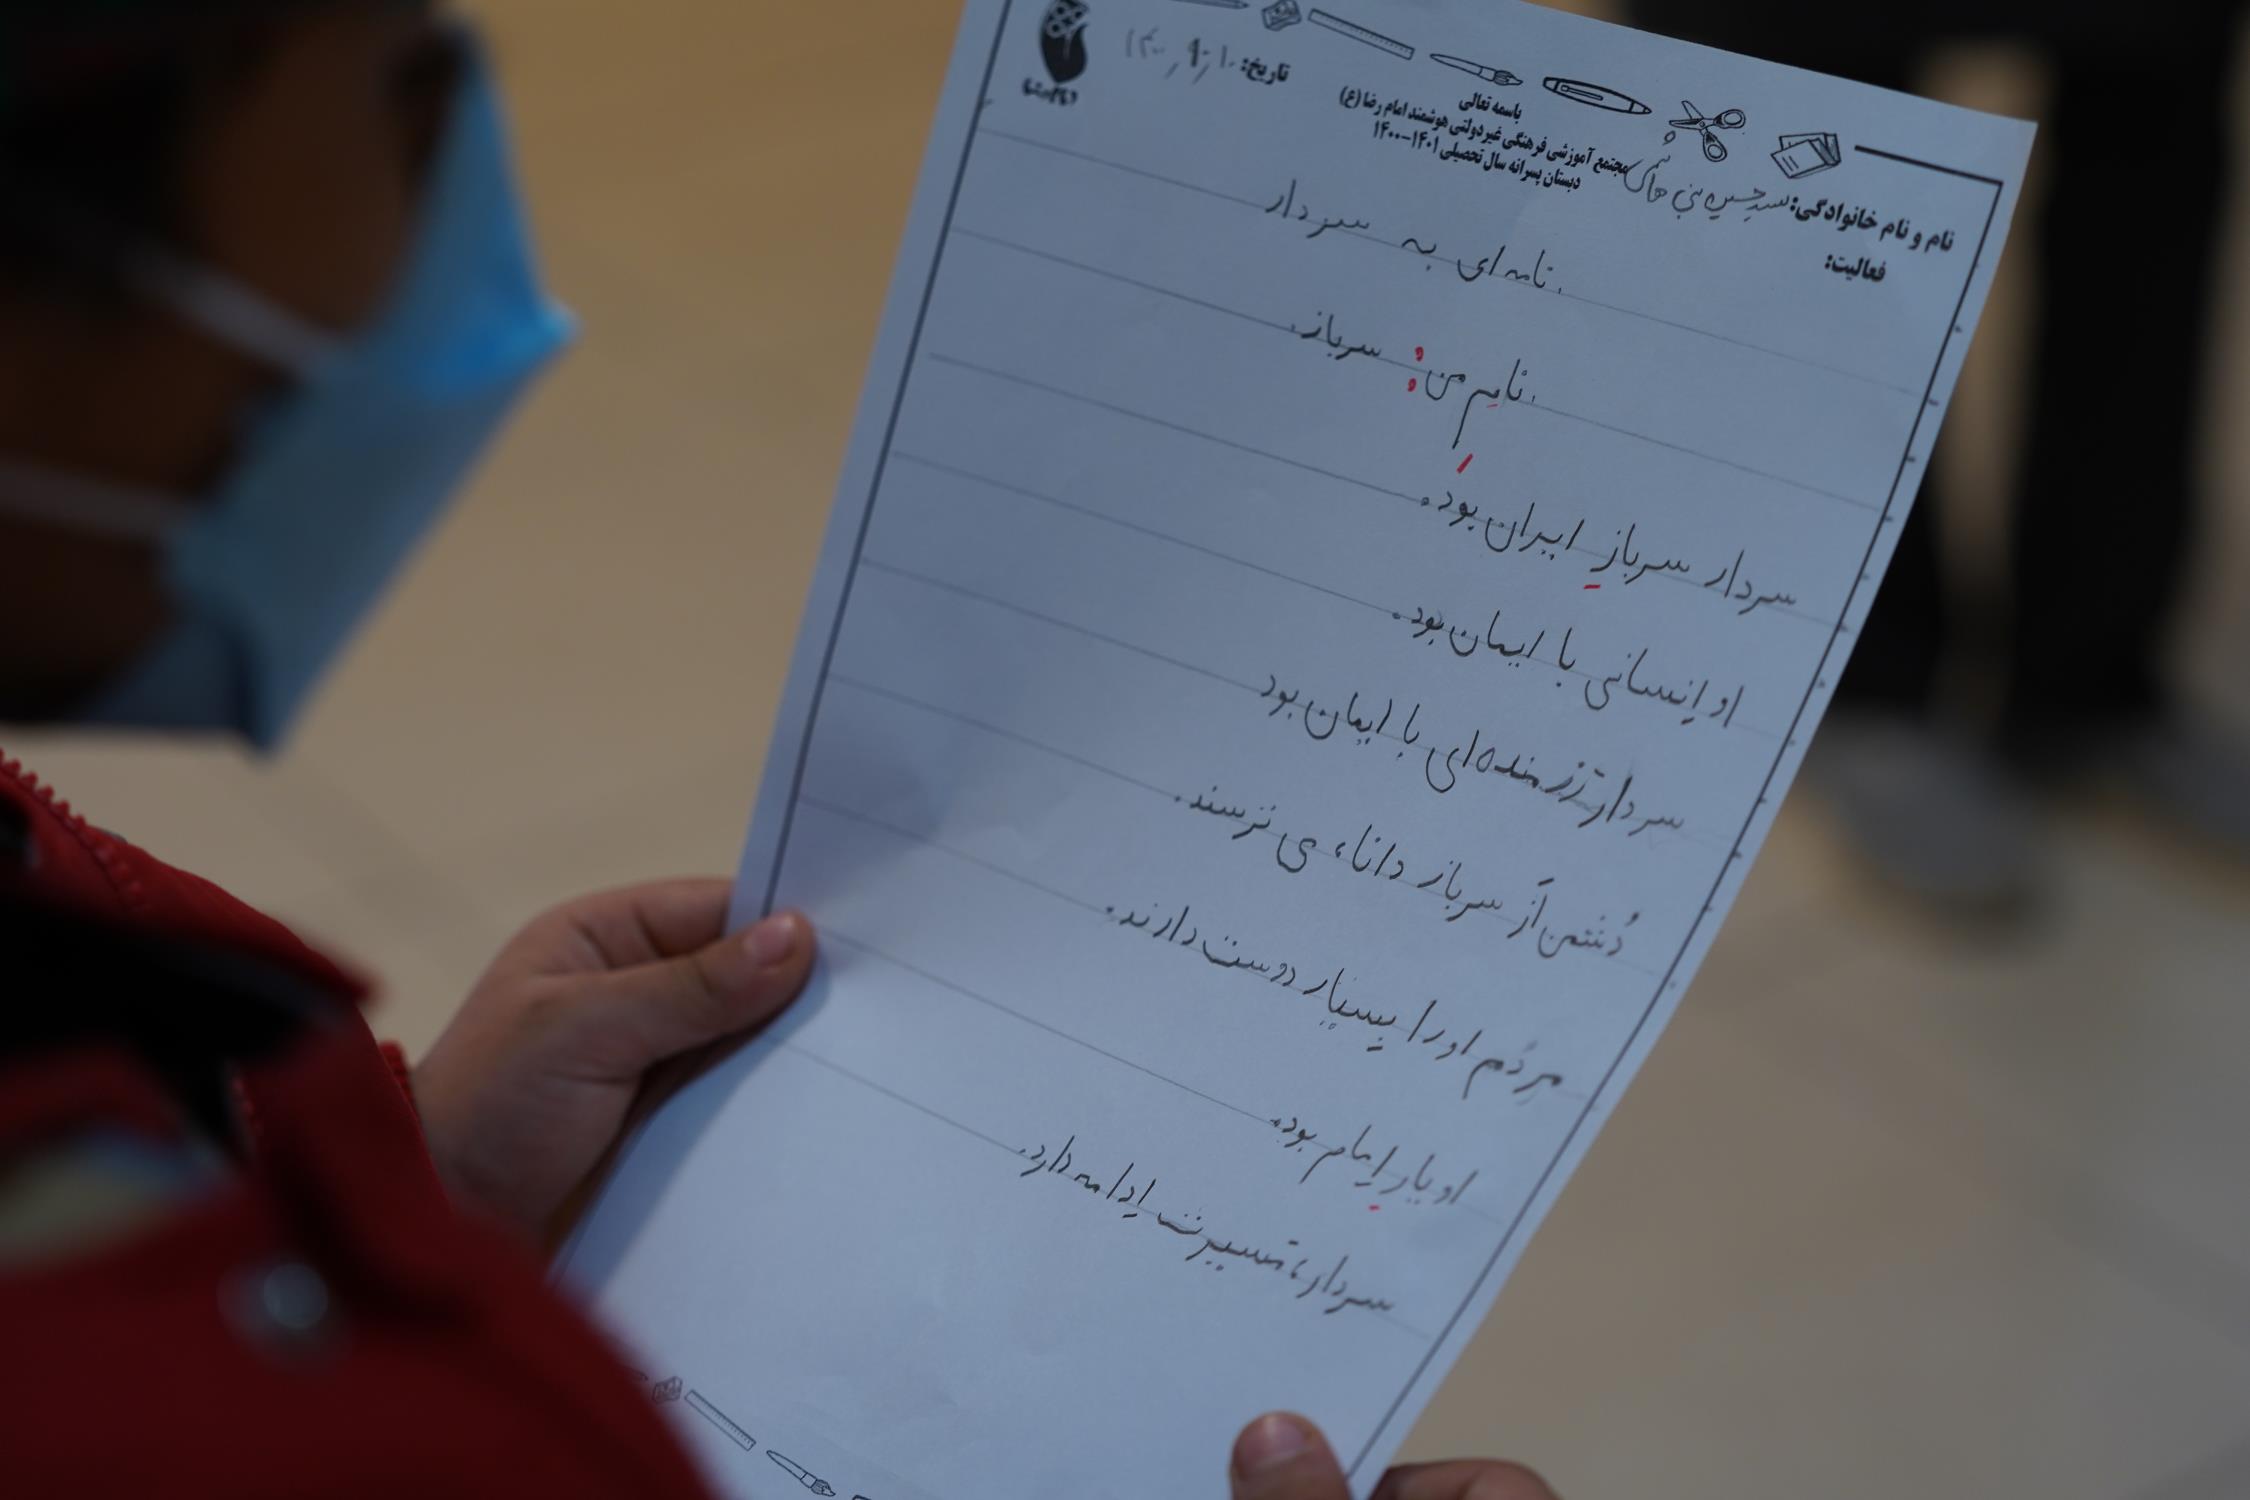 باسمه تعالی
مجتمع آموزشی فرهنگی غیردولتی هوشمند امام رضا (ع)
دبستان پسرانه سال تحصیلی ۱۴۰۱-۱۴۰۰
تاریخ: ۱۴۰۰/۹/۱۰
نام و نام خانوادگی: سید حسین بنی هاشمی
فعالیت:
نامه ای به سردار
نایِم من: سرباز.
سردار سربازِ ایران بود.
او اِنسانی با ایمان بود.
سردار رَزمنده ای با ایمان بود
دُشمن اَز سرباز دانا، می ترسند.
مردُم او را بِسیار دوست دارند.
او یارِ اِمام بود.
سردار، مسیرت اِدامه دارد.